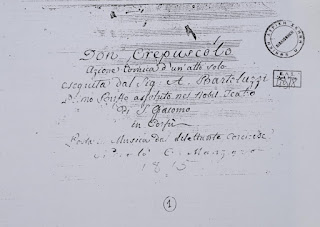 Don Crepuscolo
Azione Comica d'un atto solo
eseguita dal Sig. A. Bartoluzzi
Primo Buffo assoluto nel Nobil. Teatro
Di S. Giacomo
in Corfù
Posta in Musica da dilettante Corcirese
Nicolò C. Manzaro
1815
1